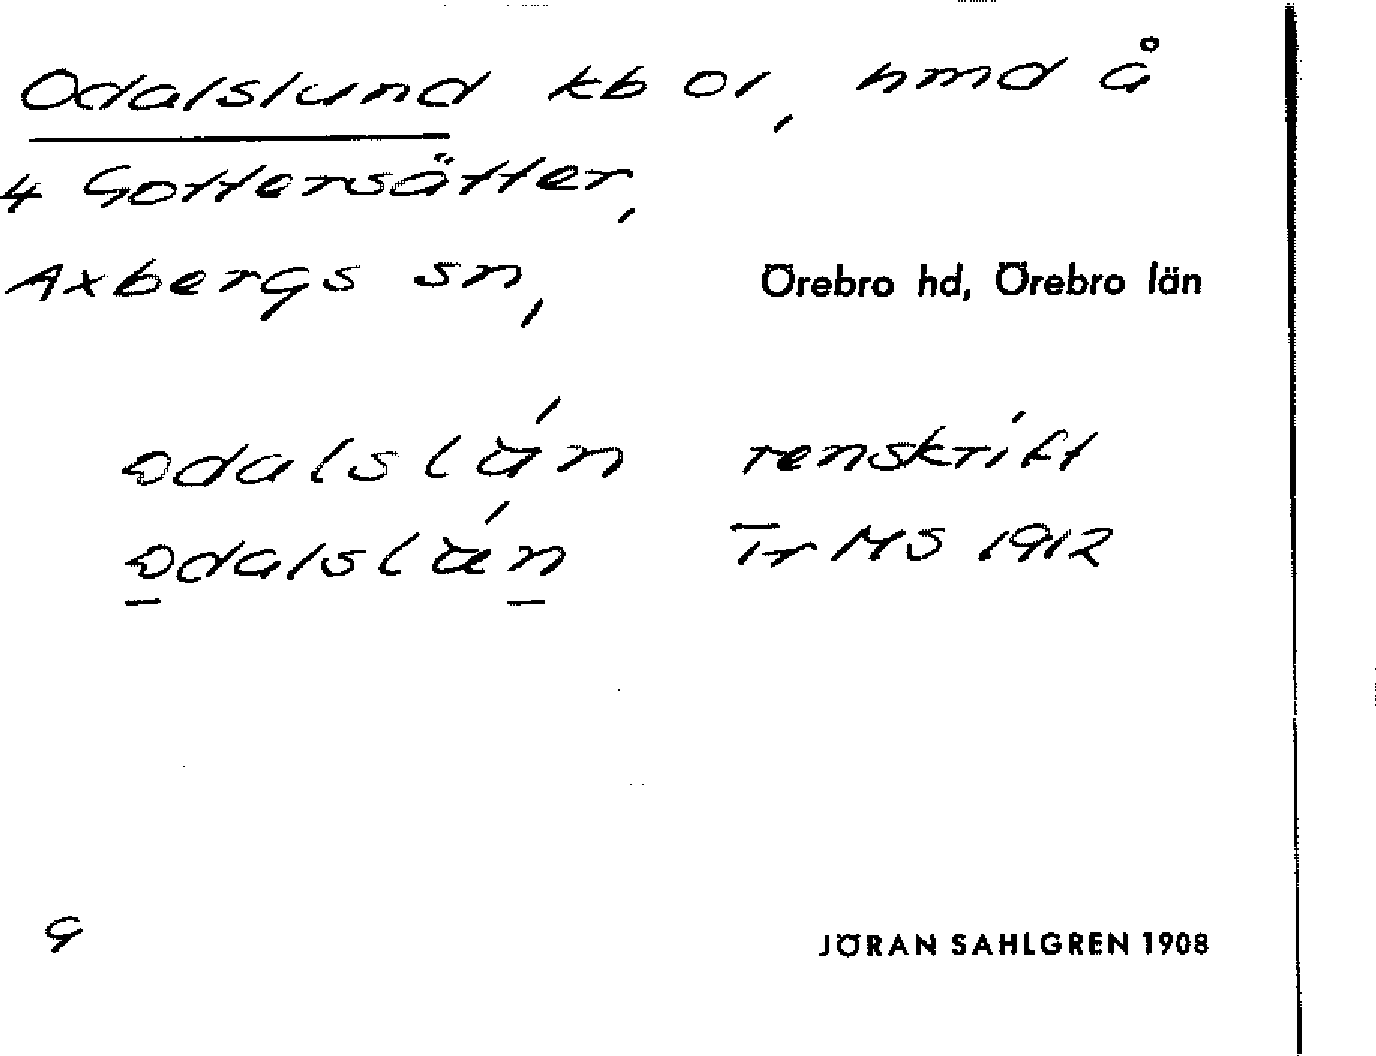 Odalslund kb ol, hmd å
4 Gottersätter,
Axbergs sn, Örebro hd, Örebro län
renskrift
Tr MS 1912
G
JÖRAN SAHLGREN 1908